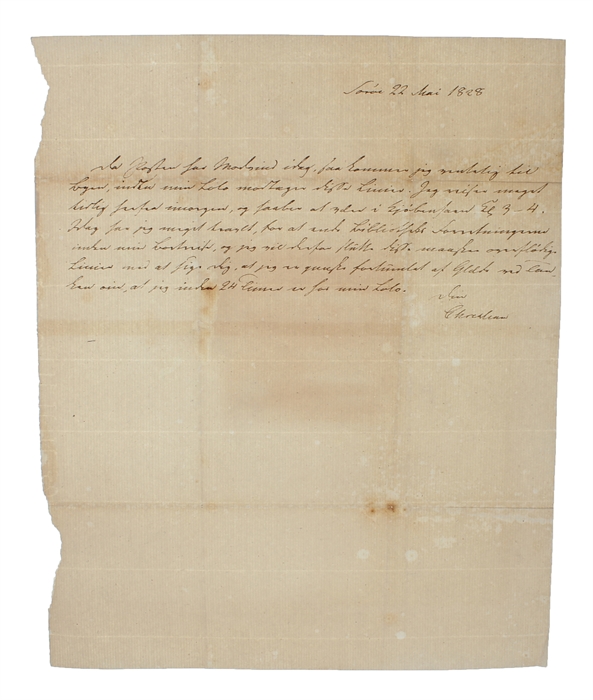 Sorøe 22 Mai 1828
Da Posten har Modvind idag, saa kommer jeg rimelig til
Byen, inden min Lolo modtager disse Linier. Jeg reiser meget
tidlig herfra imorgen, og haaber at være i Kjøbenhavn Kl 3-4.
Idag har jeg meget travlt, for at ende Bibliotheks Forretningerne
inden min Bortreise, og jeg vil derfor slutte disse maaskee overflødige
Linier med at sige dig, at jeg er ganske fortumlet af Glæde ved Tan-
ken om, at jeg inden 24 Timer er hos min Lolo.
Din
Christian